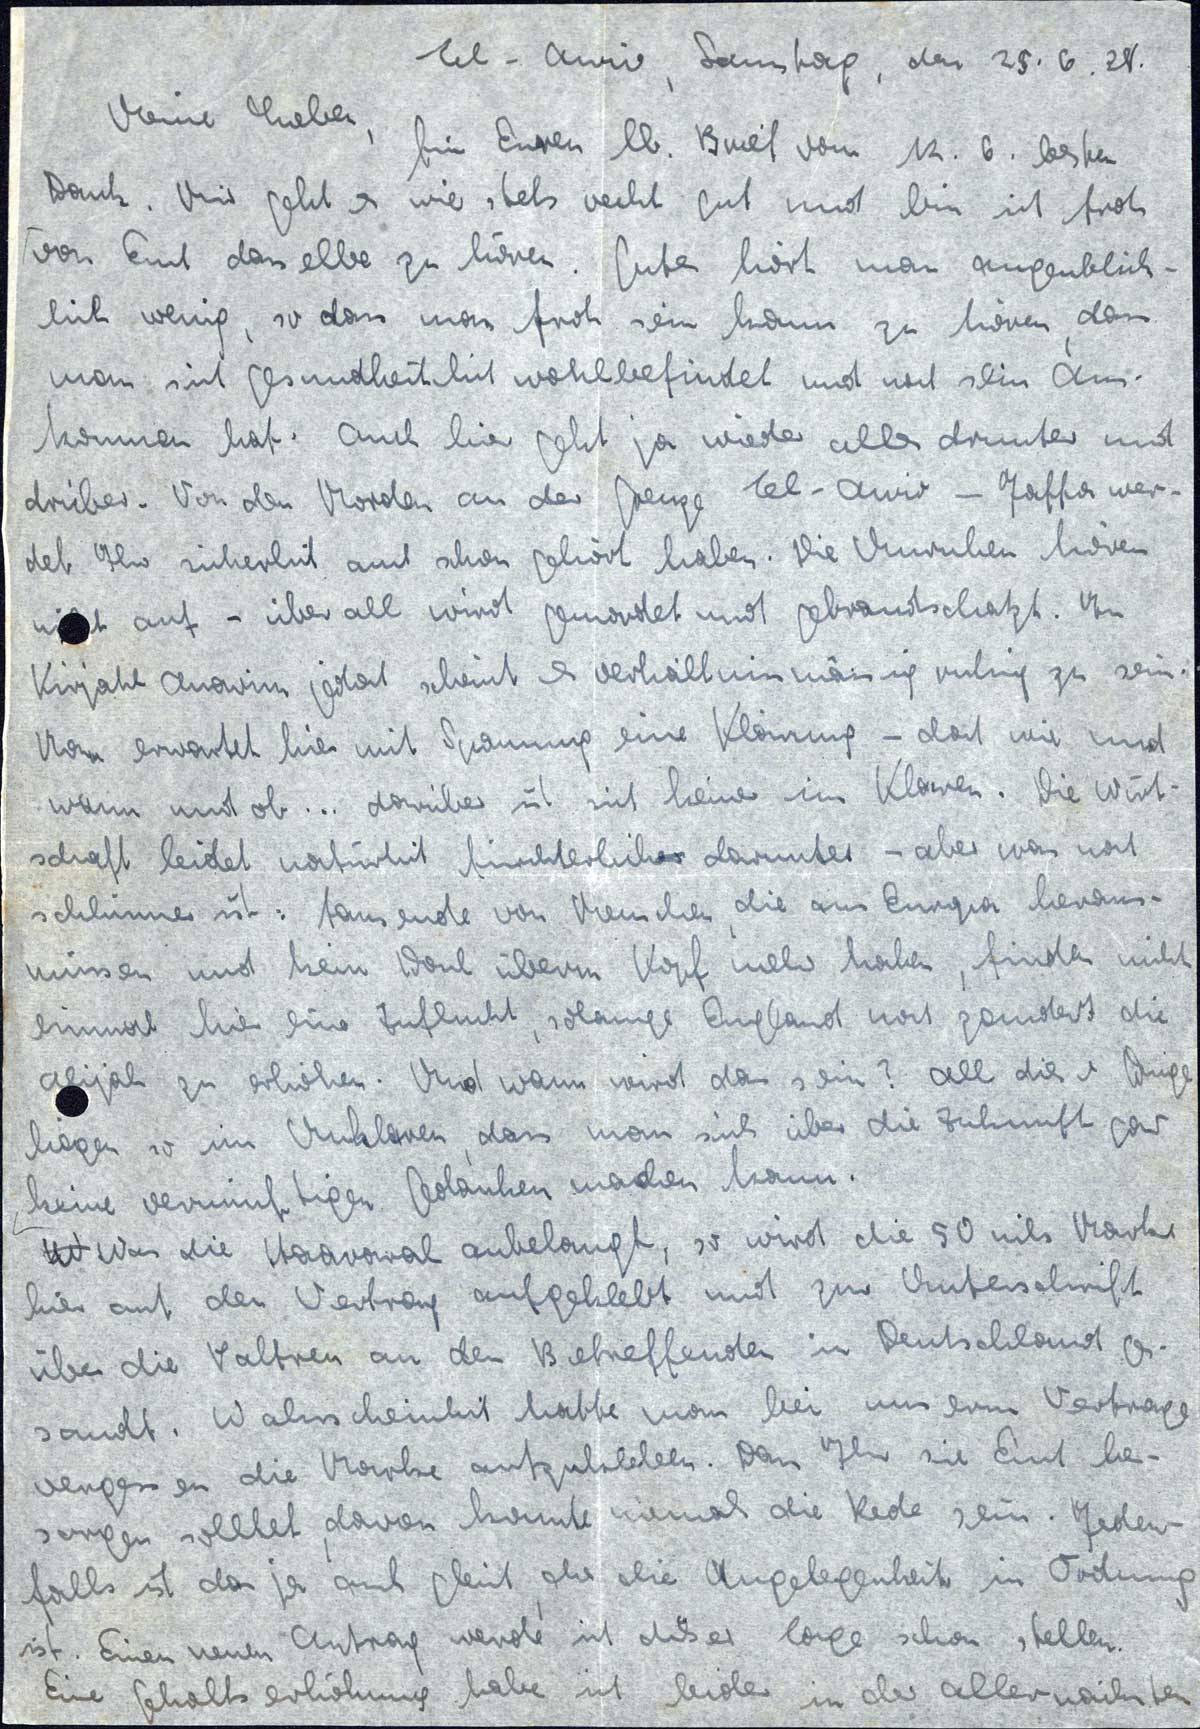 Tel-Awiw, Samstag, den 25.6.38.
Meine Lieben,
für Euren lb. Brief vom 12.6. besten
Dank. Mir geht es wie stets recht gut und bin ich froh
von Euch dasselbe zu hören. Gutes hört man augenblick-
lich wenig, so dass man froh sein kann zu hören, dass
man sich gesundheitlich wohlbefindet und noch sein Aus-
kommen hat. Auch hier geht ja wieder alles drunter und
drüber. Von den Morden an der Grenze Tel-Awiw – Jaffa wer-
det Ihr sicherlich auch schon gehört haben. Die Unruhen hören
nicht auf – überall wird gemordet und gebrandschatzt. In
Kirjath Anawim jedoch scheint es verhältnismässig ruhig zu sein.
Man erwartet hier mit Spannung eine Klärung – doch wie und
wann und ob ... darüber ist sich keiner im Klaren. Die Wirt-
schaft leidet natürlich fürchterlich darunter – aber was noch
schlimmer ist: tausende von Menschen, die aus Europa heraus-
müssen und kein Dach überm Kopf mehr haben, finden nicht
einmal hier eine Zuflucht, solange England noch zaudert die
Alijah zu erhöhen. Und wann wird das sein? All diese Dinge
liegen so im Unklaren, dass man sich über die Zukunft gar
keine vernünftigen Gedanken machen kann.
Was die Haavarah anbelangt, so wird die 50 mils Marke
hier auf den Vertrag aufgeklebt und zur Unterschrift
über die Paltreu an den Betreffenden in Deutschland ge-
sandt. Wahrscheinlich hatte man bei unserm Vertrage
vergessen die Marke aufzukleben. Dass Ihr sie Euch be-
sorgen solltet, davon konnte niemals die Rede sein. Jeden-
falls ist das ja auch gleich, die Angelegenheit in Ordnung
ist. Einen neuen Antrag werde ich dieser Tage schon stellen.
Eine Gehaltserhöhung habe ich leider in der allernächsten